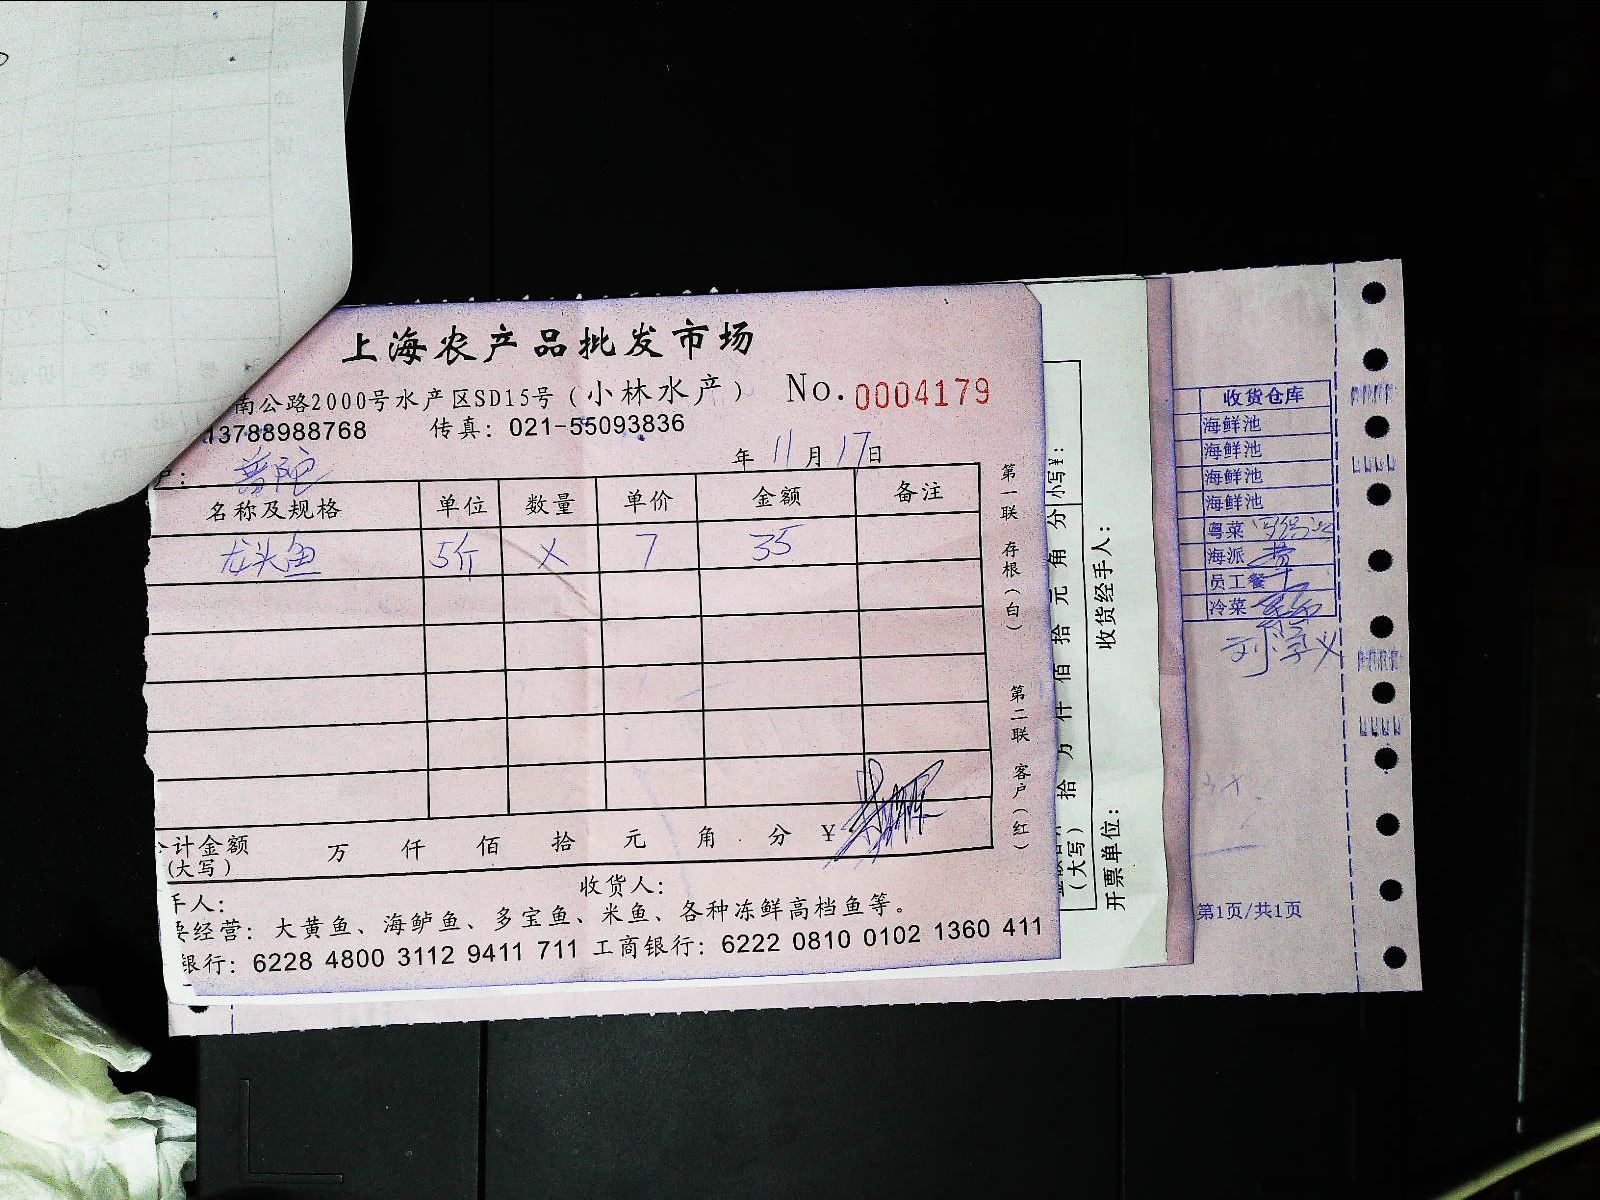 上海农产品批发市场
南公路2000号水产区SD15号(小林水产) No.0004179
13788988768 传真: 021-55093836
年 11 月 17 日
户: 普陀
名称及规格 单位 数量 单价 金额 备注
龙头鱼 5斤 × 7 35
合计金额 万 仟 佰 拾 元 角 分 ¥
(大写)
手人: 收货人:
要经营: 大黄鱼、海鲈鱼、多宝鱼、米鱼、各种冻鲜高档鱼等。
银行: 6228 4800 3112 9411 711 工商银行: 6222 0810 0102 1360 411
第一联 存根(白) 第二联 客户(红)
(大写) 拾 万 仟 佰 拾 元 角 分 小写¥:
开票单位: 收货经手人:
收货仓库
海鲜池
海鲜池
海鲜池
海鲜池
粤菜
海派
员工餐
冷菜
刘学义
第1页/共1页